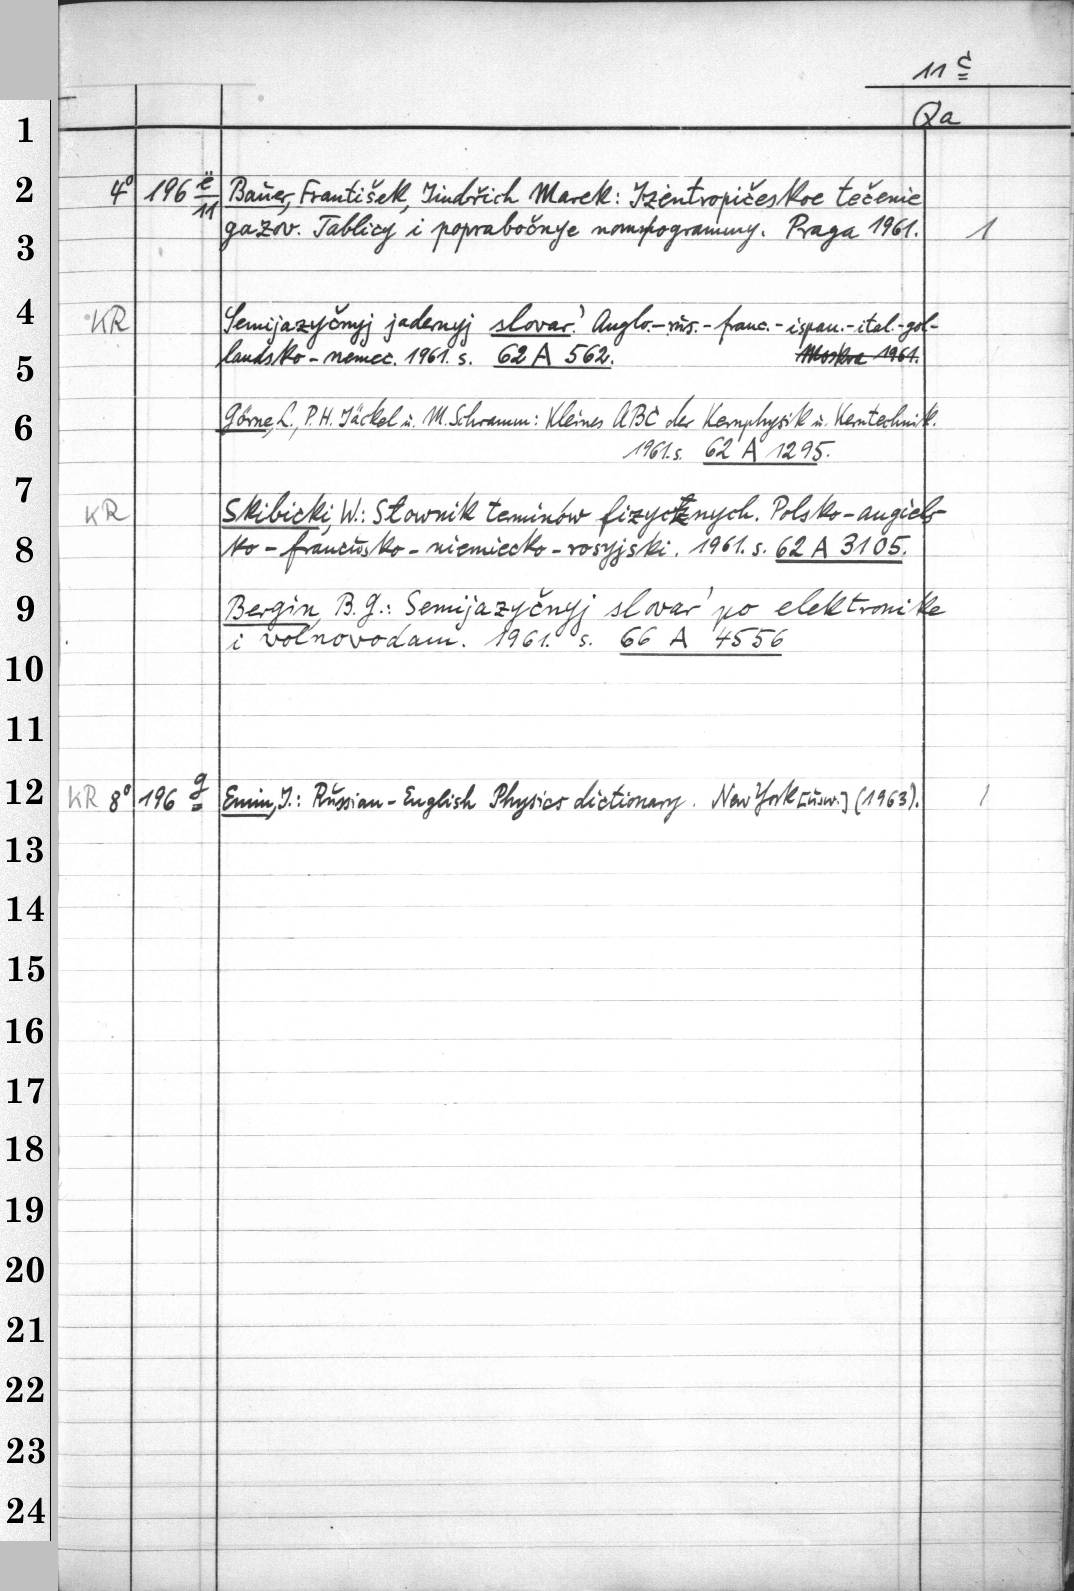 11 č
Qa
1
2 4° 196 ë/11 Bauer, František, Jindřich Marek: Izentropičeskoe tečenie
3 gazov. Tablicy i poprabočnye nomogrammy. Praga 1961. 1
4 KR Semijazyčnyj jadernyj slovar'. Anglo.-rus.-franc.-ispan.-ital.-gol-
5 landsko-nemec. 1961. s. 62 A 562. Moskva 1961.
6 Görne, L., P. H. Jäckel u. M. Schramm: Kleines ABC der Kernphysik u. Kerntechnik.
1961. s. 62 A 1295.
7 KR Skibicki, W.: Słownik teminów fizycznych. Polsko-angiels-
8 ko-francusko-niemiecko-rosyjski. 1961. s. 62 A 3105.
9 Bergin, B. G.: Semijazyčnyj slovar' po elektronike
i volnovodam. 1961. s. 66 A 4556
10
11
12 KR 8° 196 g Emin, I.: Russian-English Physics dictionary. New York [usw.] (1963). 1
13
14
15
16
17
18
19
20
21
22
23
24